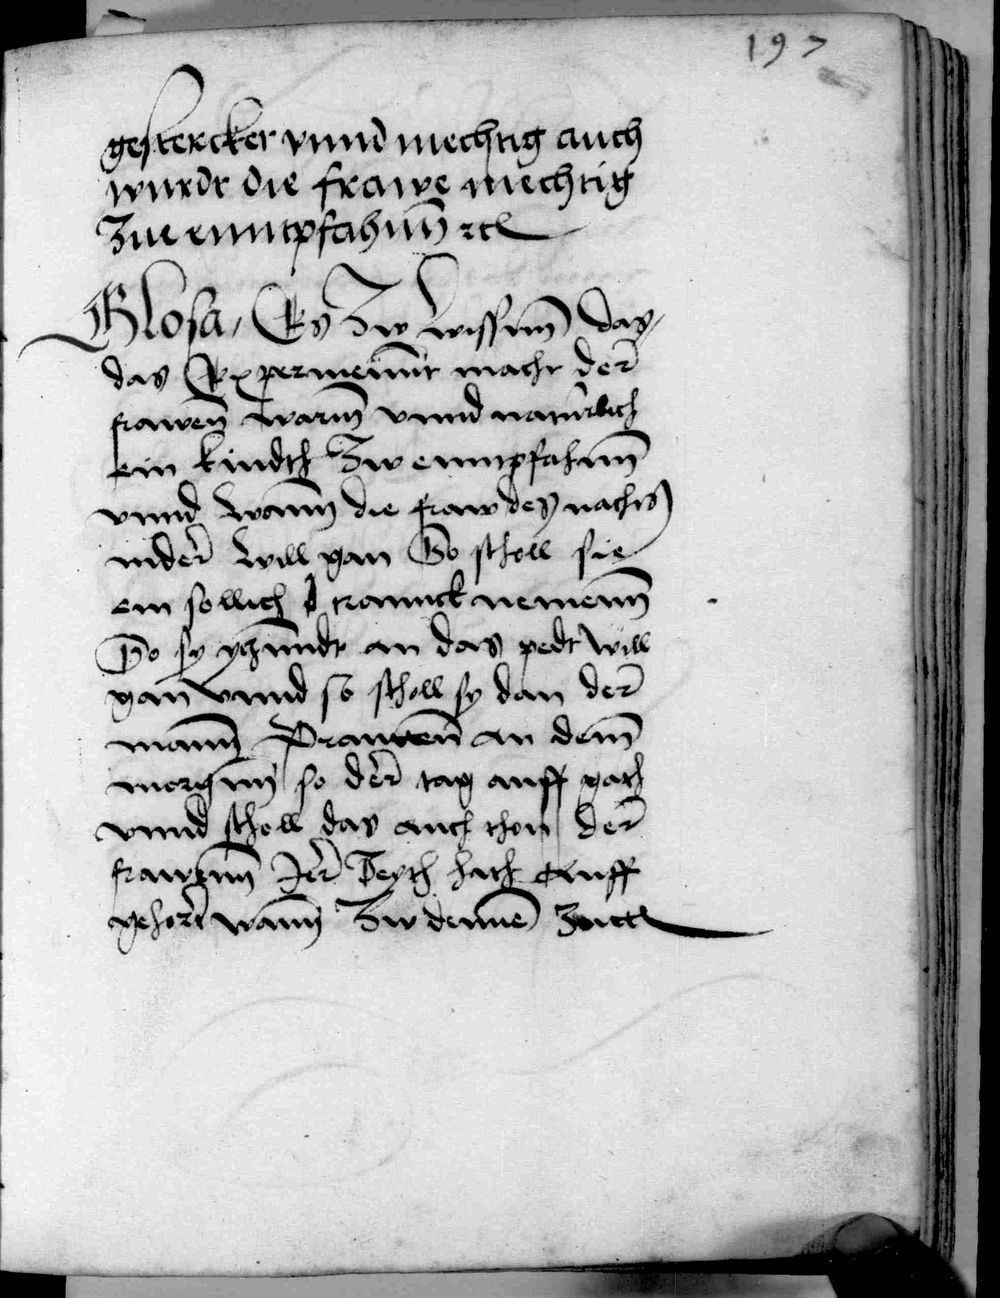 197
gestercker vnnd mechtig auch
wurdt die frawe mechtig
Zue enntpfahnn̄ ꝛcl
Glosa, Es Zw wissenn̄ das
das Expermennt macht der̄
frawen̄ warm̄ vnnd naturlich
ein kindth Zw enntpfahnn̄
vnnd wann̄ die fraw des nachts
nider̄ will gan So scholl sie
ein sollich trannck nemenn̄
So sy yhnndt an das pedt will
gan vnnd so scholl sy dan der̄
mann̄ Prauchen̄ an dem̄
morgnn̄ so der̄ tag auff gath
vnnd scholl das auch thon der̄
frawenn̄ Jr̄ Zeyth hath Auff
gehort̄ wann̄ Zw denne